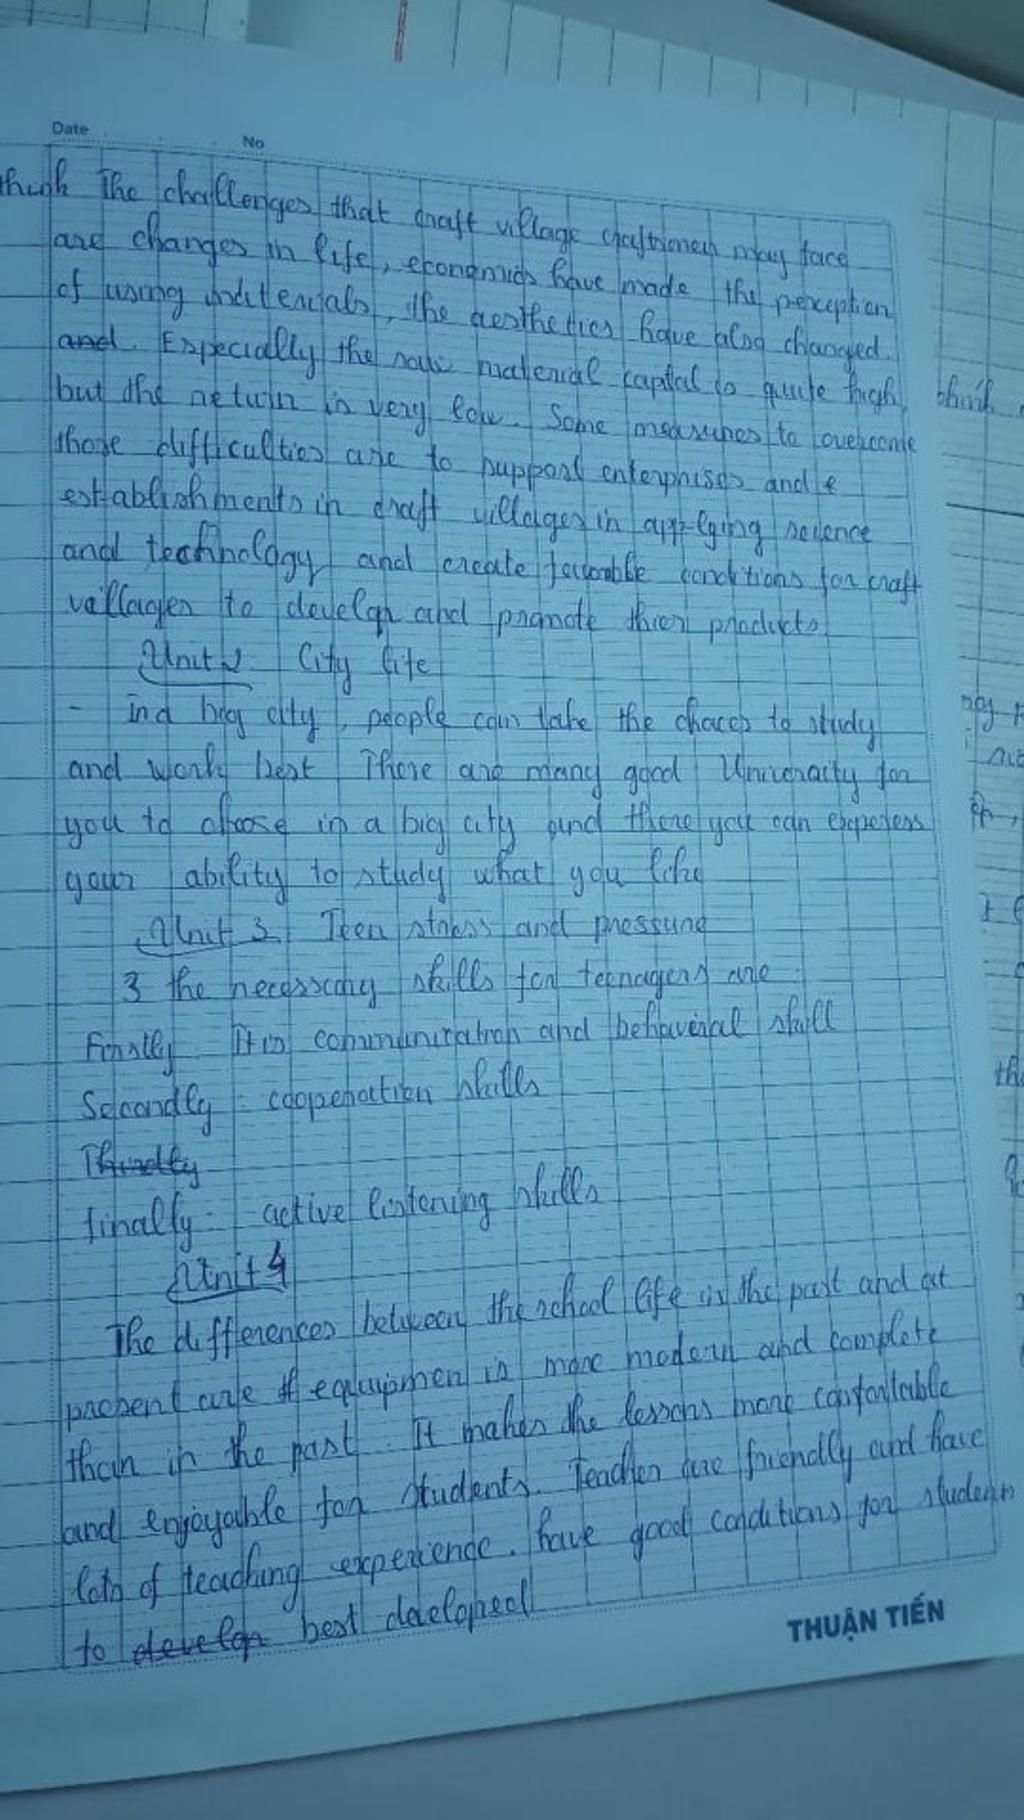 Date No
think The challenges that craft village craftsmen may face
are changes in life, economics have made the perception
of using materials, the aesthetics have also changed.
and. Especially the raw material capital is quite high,
but the return is very low. Some measures to overcome
those difficulties are to support enterprises and e
establishments in craft villages in applying science
and technology and create favorable conditions for craft
villages to develop and promote thier products
Unit 2 City life
- in a big city, people can take the chaces to study
and work best There are many good Universaity for
you to choose in a big city and there you can experess
your ability to study what you like
Unit 3 Teen stress and pressure
3 the necessary skills for teenagers are
Firstly It is communication and behavieral skill
Secondly : cooperation skills
Thirdly
finally : active listening skills
Unit 4
The differences between the school life in the past and at
present are equipmen is more modern and complete
than in the past. It makes the lessons more confortable
and enjoyable for students. Teacher are friendly and have
lots of teaching experience. have good conditions for students
to develop best developed
THUẬN TIẾN
think